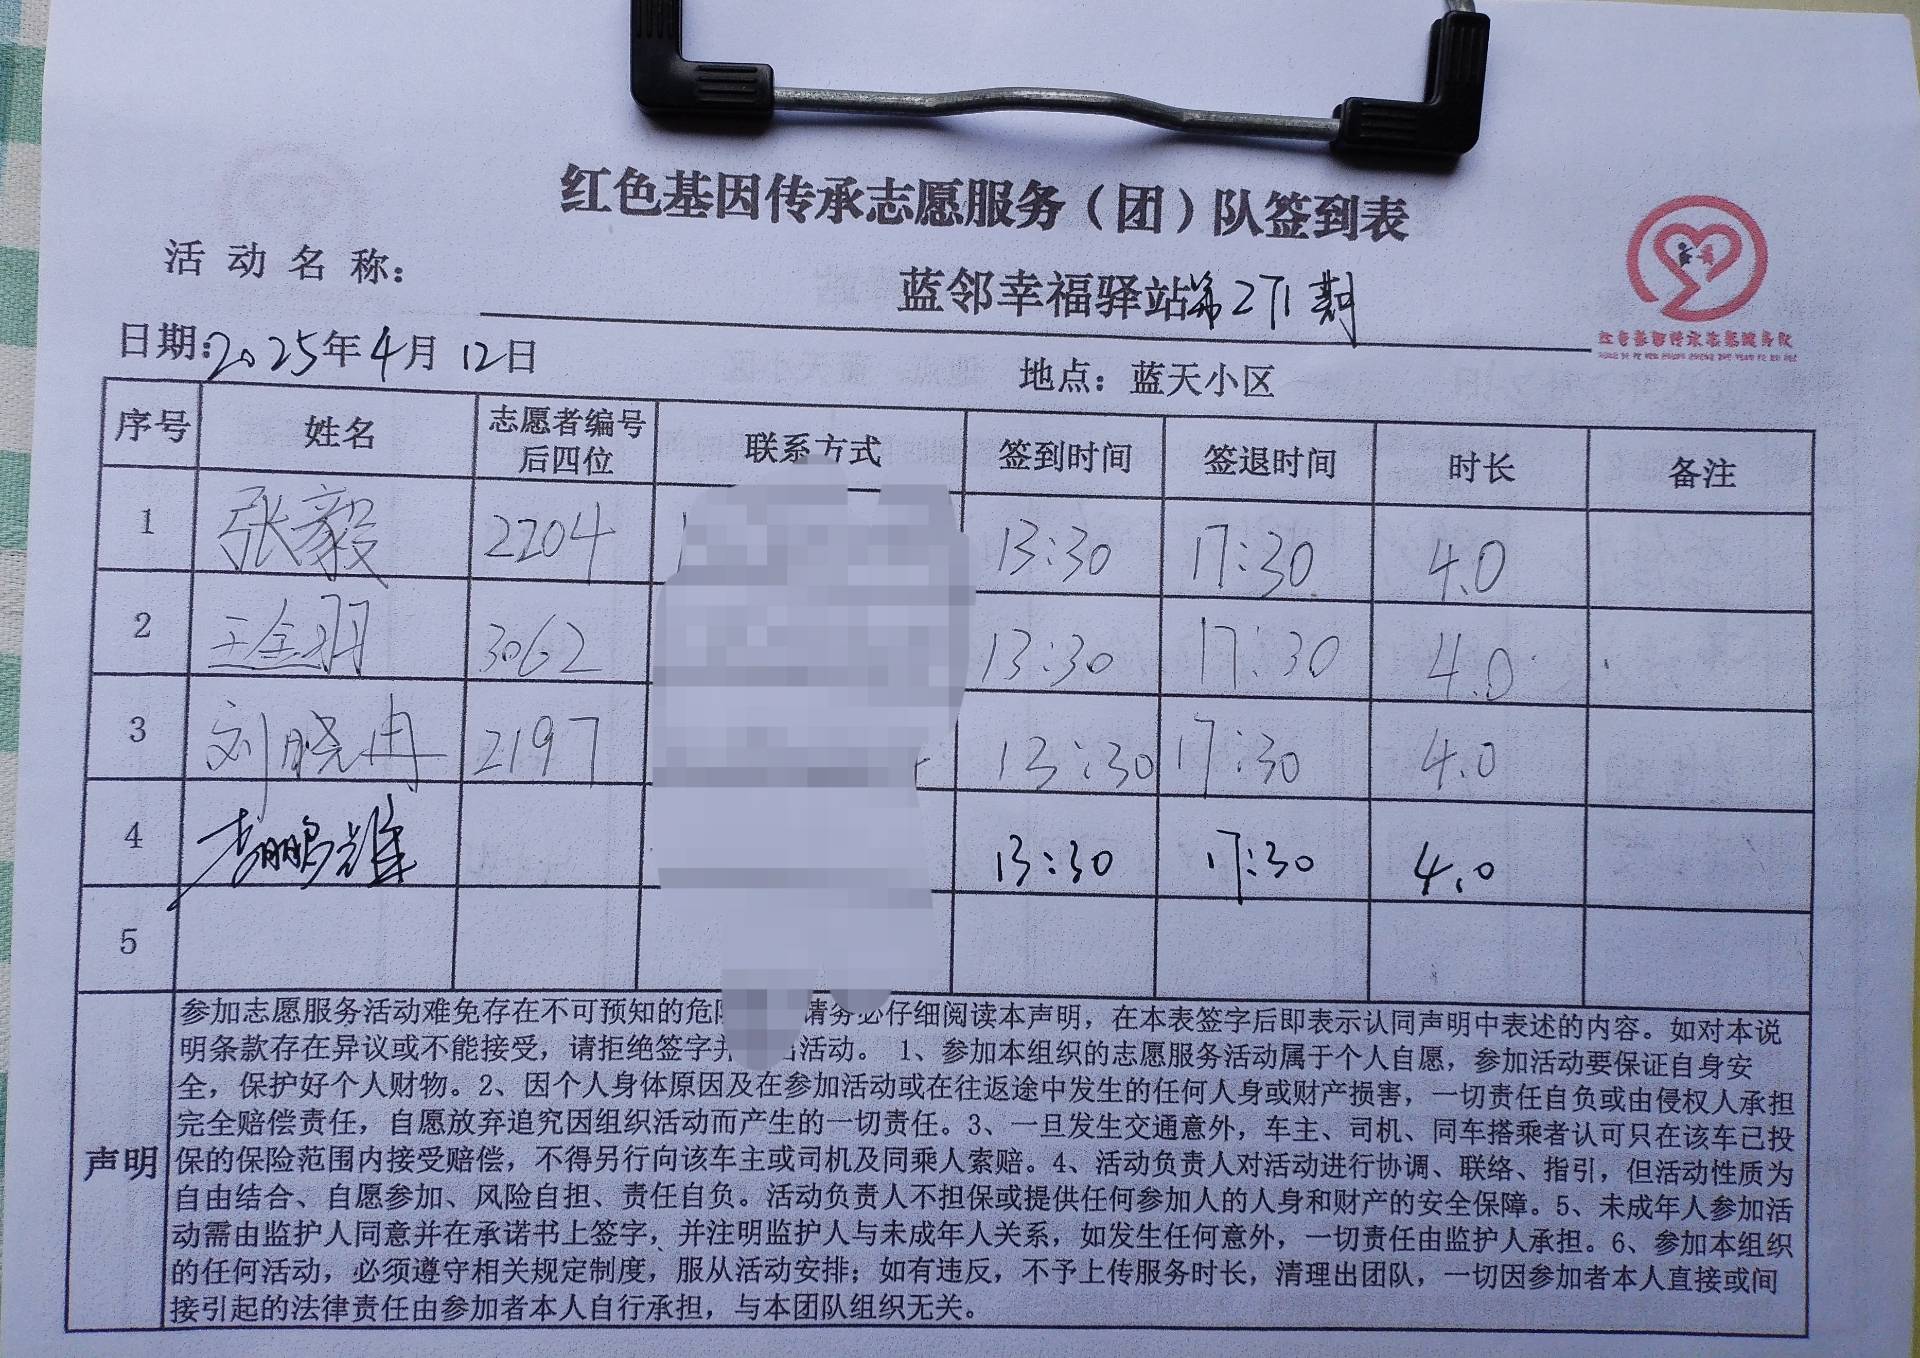 红色基因传承志愿服务（团）队签到表
活动名称：
蓝邻幸福驿站第271期
红色基因传承志愿服务队
日期：2025年4月12日
地点：蓝天小区
序号 姓名 志愿者编号后四位 联系方式 签到时间 签退时间 时长 备注
1 张毅 2204 13:30 17:30 4.0
2 王金羽 3062 13:30 17:30 4.0
3 刘晓冉 2197 13:30 17:30 4.0
4 李鹏雄 13:30 17:30 4.0
5
声明
参加志愿服务活动难免存在不可预知的危 请务必仔细阅读本声明，在本表签字后即表示认同声明中表述的内容。如对本说
明条款存在异议或不能接受，请拒绝签字并 活动。 1、参加本组织的志愿服务活动属于个人自愿，参加活动要保证自身安
全，保护好个人财物。2、因个人身体原因及在参加活动或在往返途中发生的任何人身或财产损害，一切责任自负或由侵权人承担
完全赔偿责任，自愿放弃追究因组织活动而产生的一切责任。3、一旦发生交通意外，车主、司机、同车搭乘者认可只在该车已投
保的保险范围内接受赔偿，不得另行向该车主或司机及同乘人索赔。4、活动负责人对活动进行协调、联络、指引，但活动性质为
自由结合、自愿参加、风险自担、责任自负。活动负责人不担保或提供任何参加人的人身和财产的安全保障。5、未成年人参加活
动需由监护人同意并在承诺书上签字，并注明监护人与未成年人关系，如发生任何意外，一切责任由监护人承担。6、参加本组织
的任何活动，必须遵守相关规定制度，服从活动安排；如有违反，不予上传服务时长，清理出团队，一切因参加者本人直接或间
接引起的法律责任由参加者本人自行承担，与本团队组织无关。